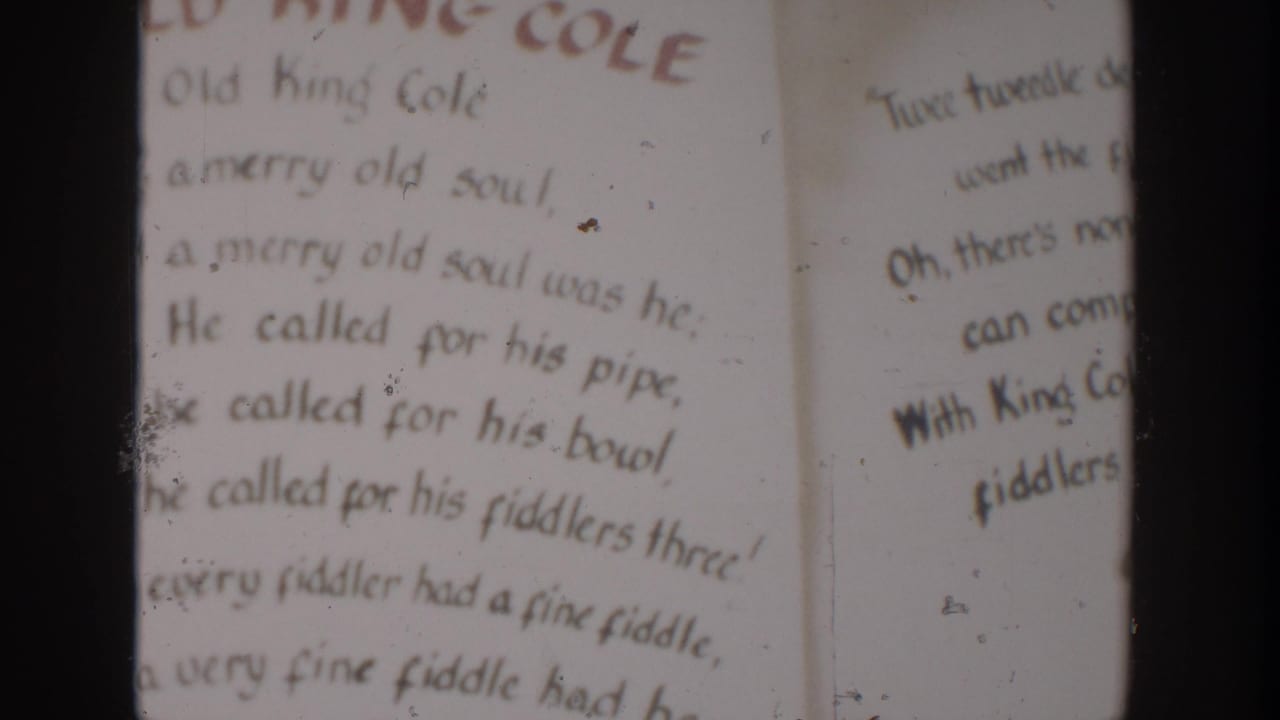 KING COLE
Old King Cole
a merry old soul,
a merry old soul was he;
He called for his pipe,
he called for his bowl,
he called for his fiddlers three!
every fiddler had a fine fiddle,
a very fine fiddle had
"Twee tweedle
went the
Oh, there's
can
With King
fiddlers